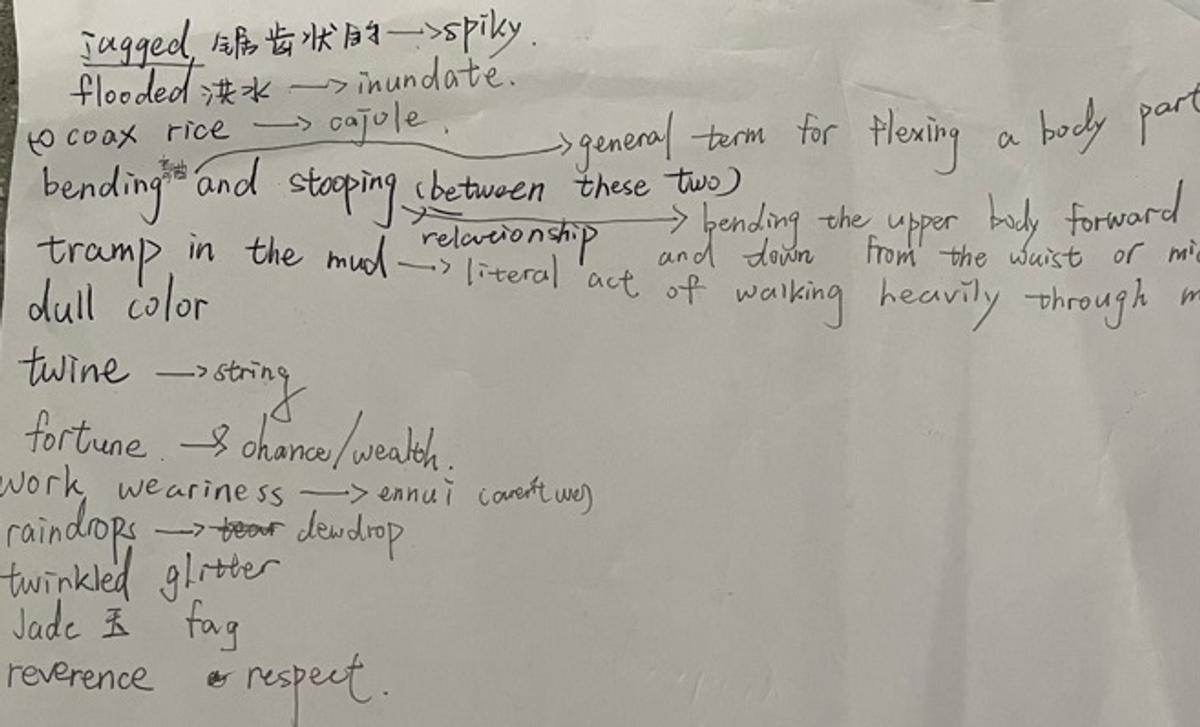 jagged 锯齿状的 → spiky.
flooded 洪水 → inundate.
to coax rice → cajole.
→ general term for flexing a body part
bending 弯曲 and stooping (between these two)
relationship
→ bending the upper body forward
and down from the waist or mi
tramp in the mud → literal act of walking heavily through m
dull color
twine → string
fortune. → chance/wealth.
work weariness → ennui
raindrops → dewdrop
twinkled glitter
Jade 玉 fag
reverence respect.